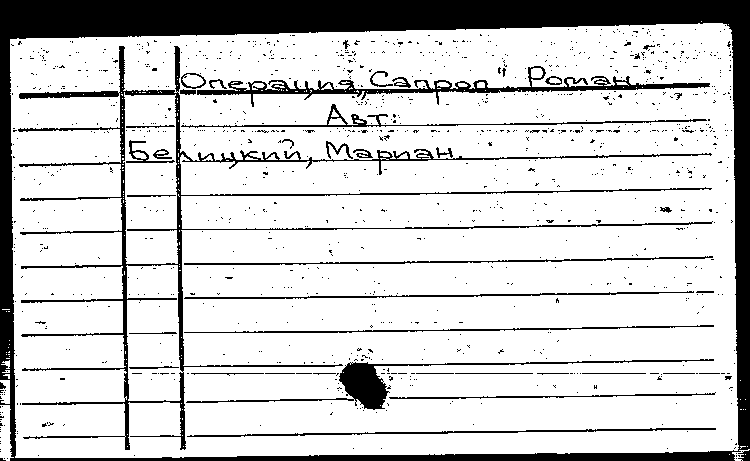 Операция „Сапрол" Роман
Авт:
Белицкий, Мариан.